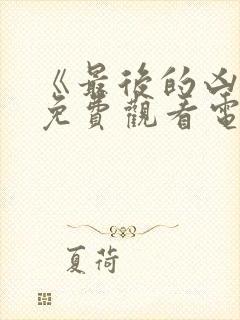 《最後的凶
免費觀看電
夏荷